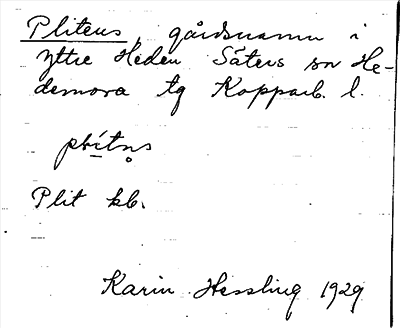 Plitens, gårdsnamn i
yttre Heden Säters sn He-
demora tg Kopparb. l.
Plit kb.
Karin Hessling 1929